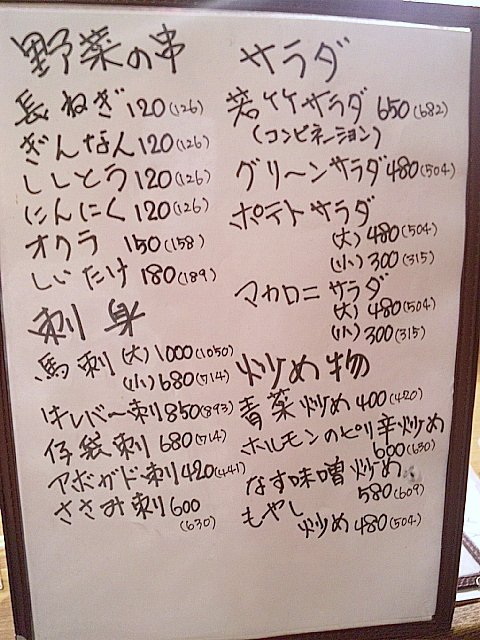 野菜の串
長ねぎ 120(126)
ぎんなん 120(126)
ししとう 120(126)
にんにく 120(126)
オクラ 150(158)
しいたけ 180(189)
刺身
馬刺(大)1000(1050)
(小)680(714)
牛レバー刺 850(893)
仔袋刺 680(714)
アボガド刺 420(441)
ささみ刺 600
(630)
サラダ
若竹サラダ 650(682)
(コンビネーション)
グリーンサラダ 480(504)
ポテトサラダ
(大)480(504)
(小)300(315)
マカロニサラダ
(大)480(504)
(小)300(315)
炒め物
青菜炒め 400(420)
ホルモンのピリ辛炒め
600(630)
なす味噌炒め
580(609)
もやし
炒め 480(504)